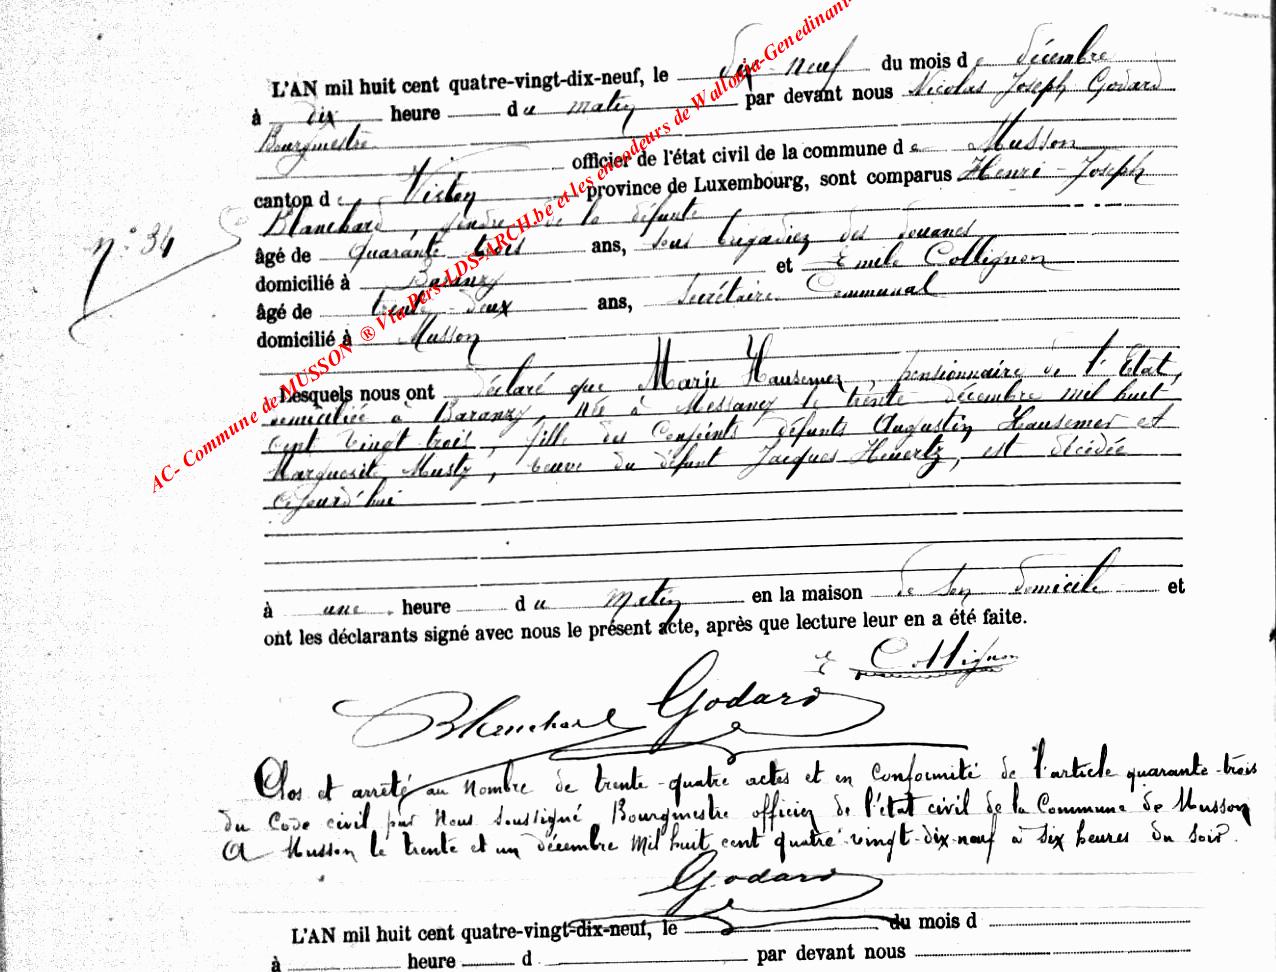 L'AN mil huit cent quatre-vingt-dix-neuf, le dix-neuf du mois de décembre
à dix heure du matin par devant nous Nicolas Joseph Godard
Bourgmestre
officier de l'état civil de la commune de Musson
canton de Virton province de Luxembourg, sont comparus Henri-Joseph
n° 34 Blanchard, gendre de la défunte
âgé de quarante trois ans, sous brigadier des douanes
domicilié à Baranzy et Emile Collignon
âgé de trente-deux ans, Secrétaire Communal
domicilié à Musson
Lesquels nous ont déclaré que Marie Hausemer, pensionnaire de l'Etat,
domiciliée à Baranzy, née à Messancy le trente décembre mil huit
cent vingt trois, fille des Conjoints défunts Augustin Hausemer et
Marguerite Mustz, veuve du défunt Jacques Heuertz, est décédée
cejourd'hui
à une heure du matin en la maison de son domicile et
ont les déclarants signé avec nous le présent acte, après que lecture leur en a été faite.
E Collignon
Blanchard Godard
Clos et arrêté au nombre de trente-quatre actes et en conformité de l'article quarante-trois
du Code civil par Nous soussigné Bourgmestre officier de l'état civil de la Commune de Musson
A Musson le trente et un décembre mil huit cent quatre-vingt-dix-neuf à six heures du soir.
Godard
L'AN mil huit cent quatre-vingt-dix-neuf, le du mois d
à heure d par devant nous
AC- Commune de MUSSON ® Via Pers-LDS-ARCH.be et les encodeurs de Wallonia-Genedinant